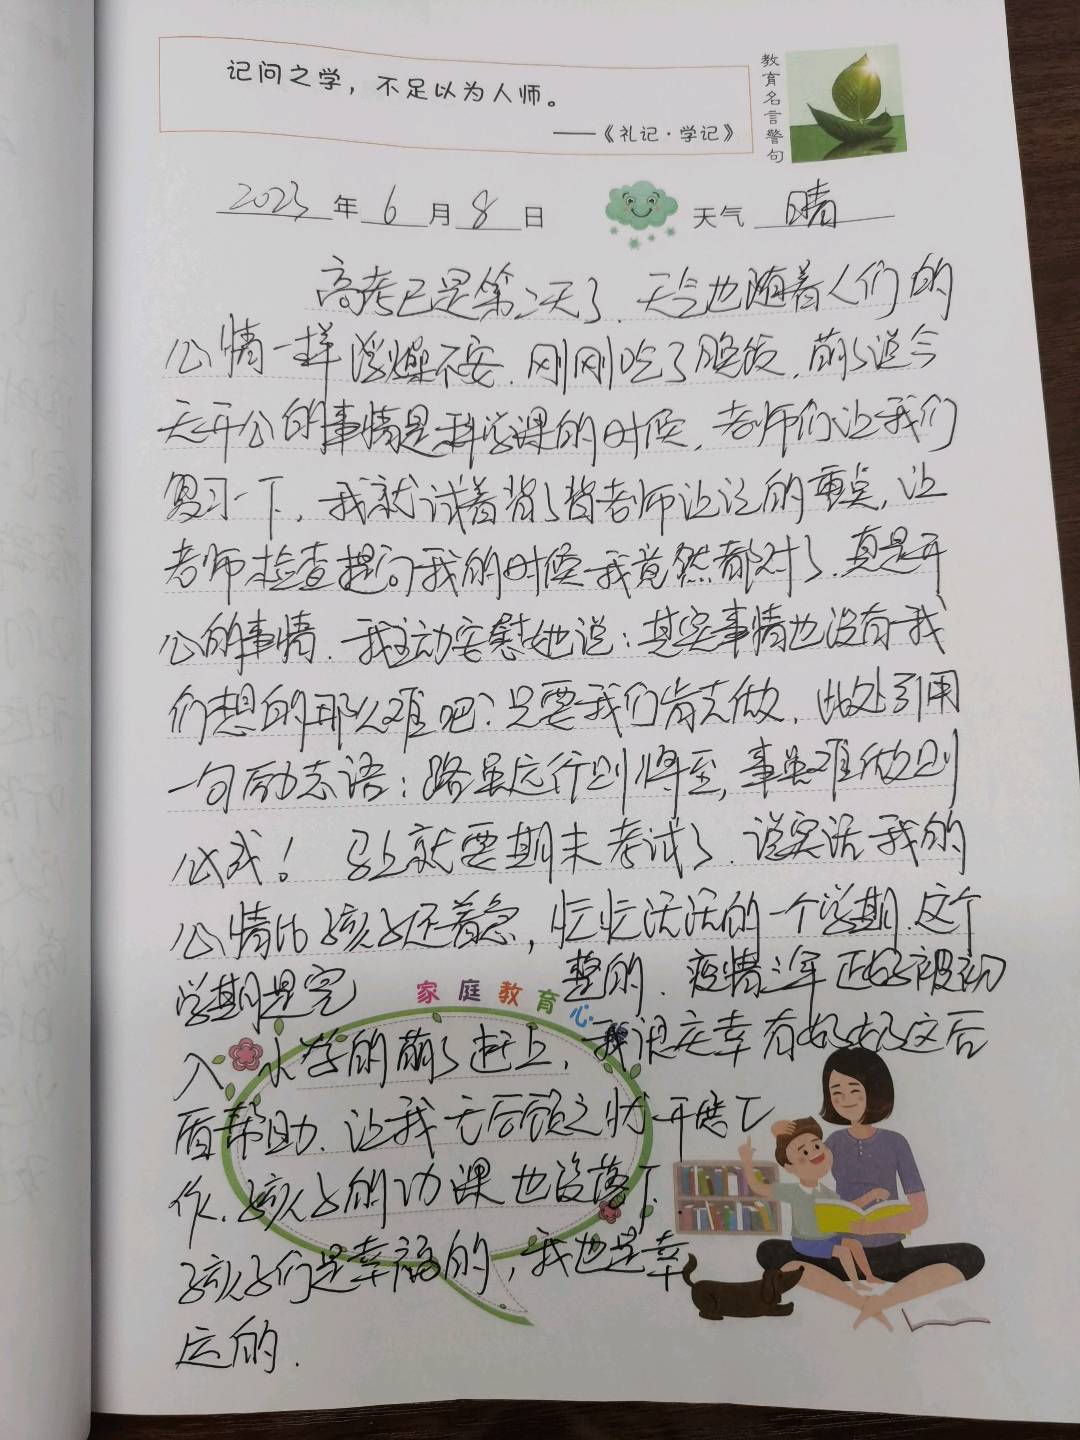 记问之学，不足以为人师。
——《礼记·学记》
教育名言警句
2023年6月8日 天气 晴
高考已是第二天了.天气也随着人们的
心情一样浮燥不安.刚刚吃了晚饭.萌萌说今
天开心的事情是科学课的时候,老师们让我们
复习一下,我就试着背了背老师让记的重点,让
老师检查提问我的时候我竟然都对了.真是开
心的事情.我主动安慰她说:其实事情也没有我
们想的那么难吧?只要我们肯去做.此处引用
一句励志语:路虽远行则将至,事虽难做则
必成! 马上就要期末考试了.说实话我的
心情比孩子还着急,忙忙活活的一个学期.这个
学期是完整的.疫情三年正好被初
家庭教育心
入小学的萌萌赶上,我很庆幸有好好这后
盾帮助.让我无后顾之忧开展工
作.孩子的功课也没落下.
孩子们是幸福的,我也是幸
运的.